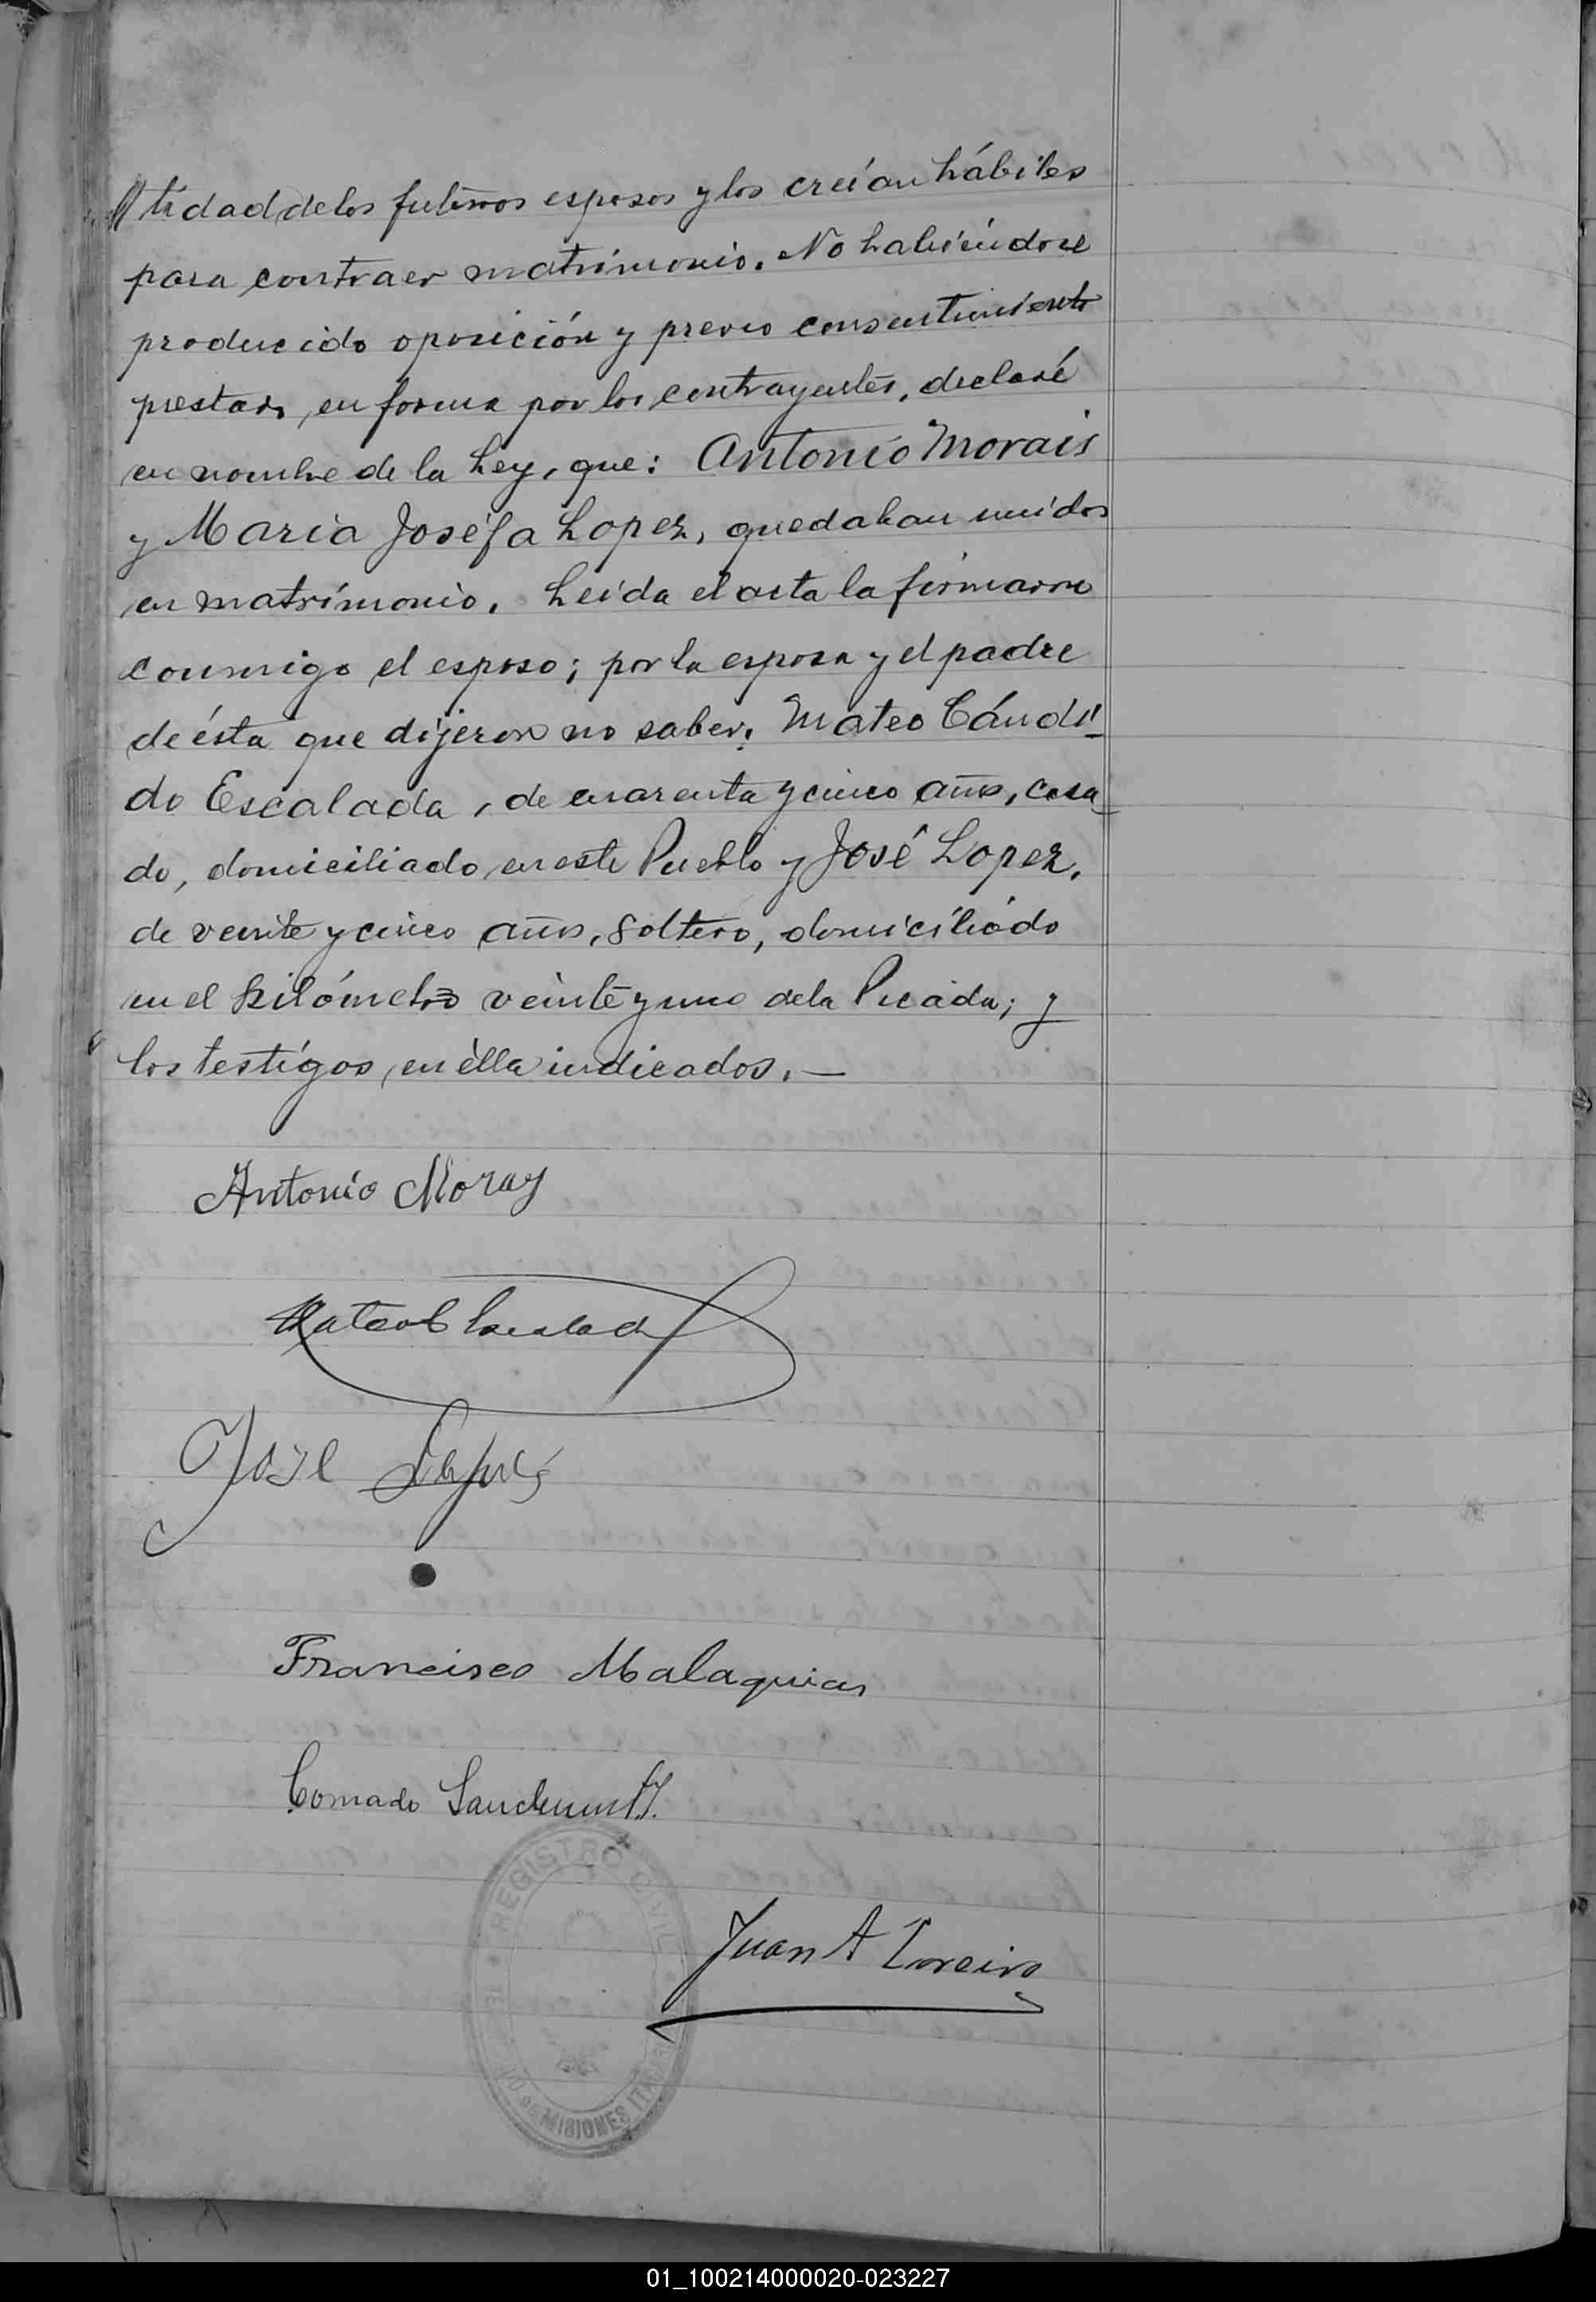 tidad de los futuros esposos y los creían hábiles
para contraer matrimonio. No habiéndose
producido oposición y previo consentimiento
prestado, en forma por los contrayentes, declaré
en nombre de la Ley, que: Antonio Morais
y María Joséfa Lopez, quedaban unidos
en matrimonio. Leída el acta la firmaron
conmigo el esposo; por la esposa y el padre
de ésta que dijeron no saber, Mateo Cándi
do Escalada, de cuarenta y cinco años, casa
do, domiciliado en este Pueblo y José Lopez,
de veinte y cinco años, soltero, domiciliado
en el kilómetro veinte y uno de la Picada; y
los testigos, en élla indicados.—
Antonio Moray
Mateo C Escalada
José Lopes
Francisco Malaquias
Conrado
REGISTRO CIVIL
MISIONES
Juan A Loreiro
01_100214000020-023227